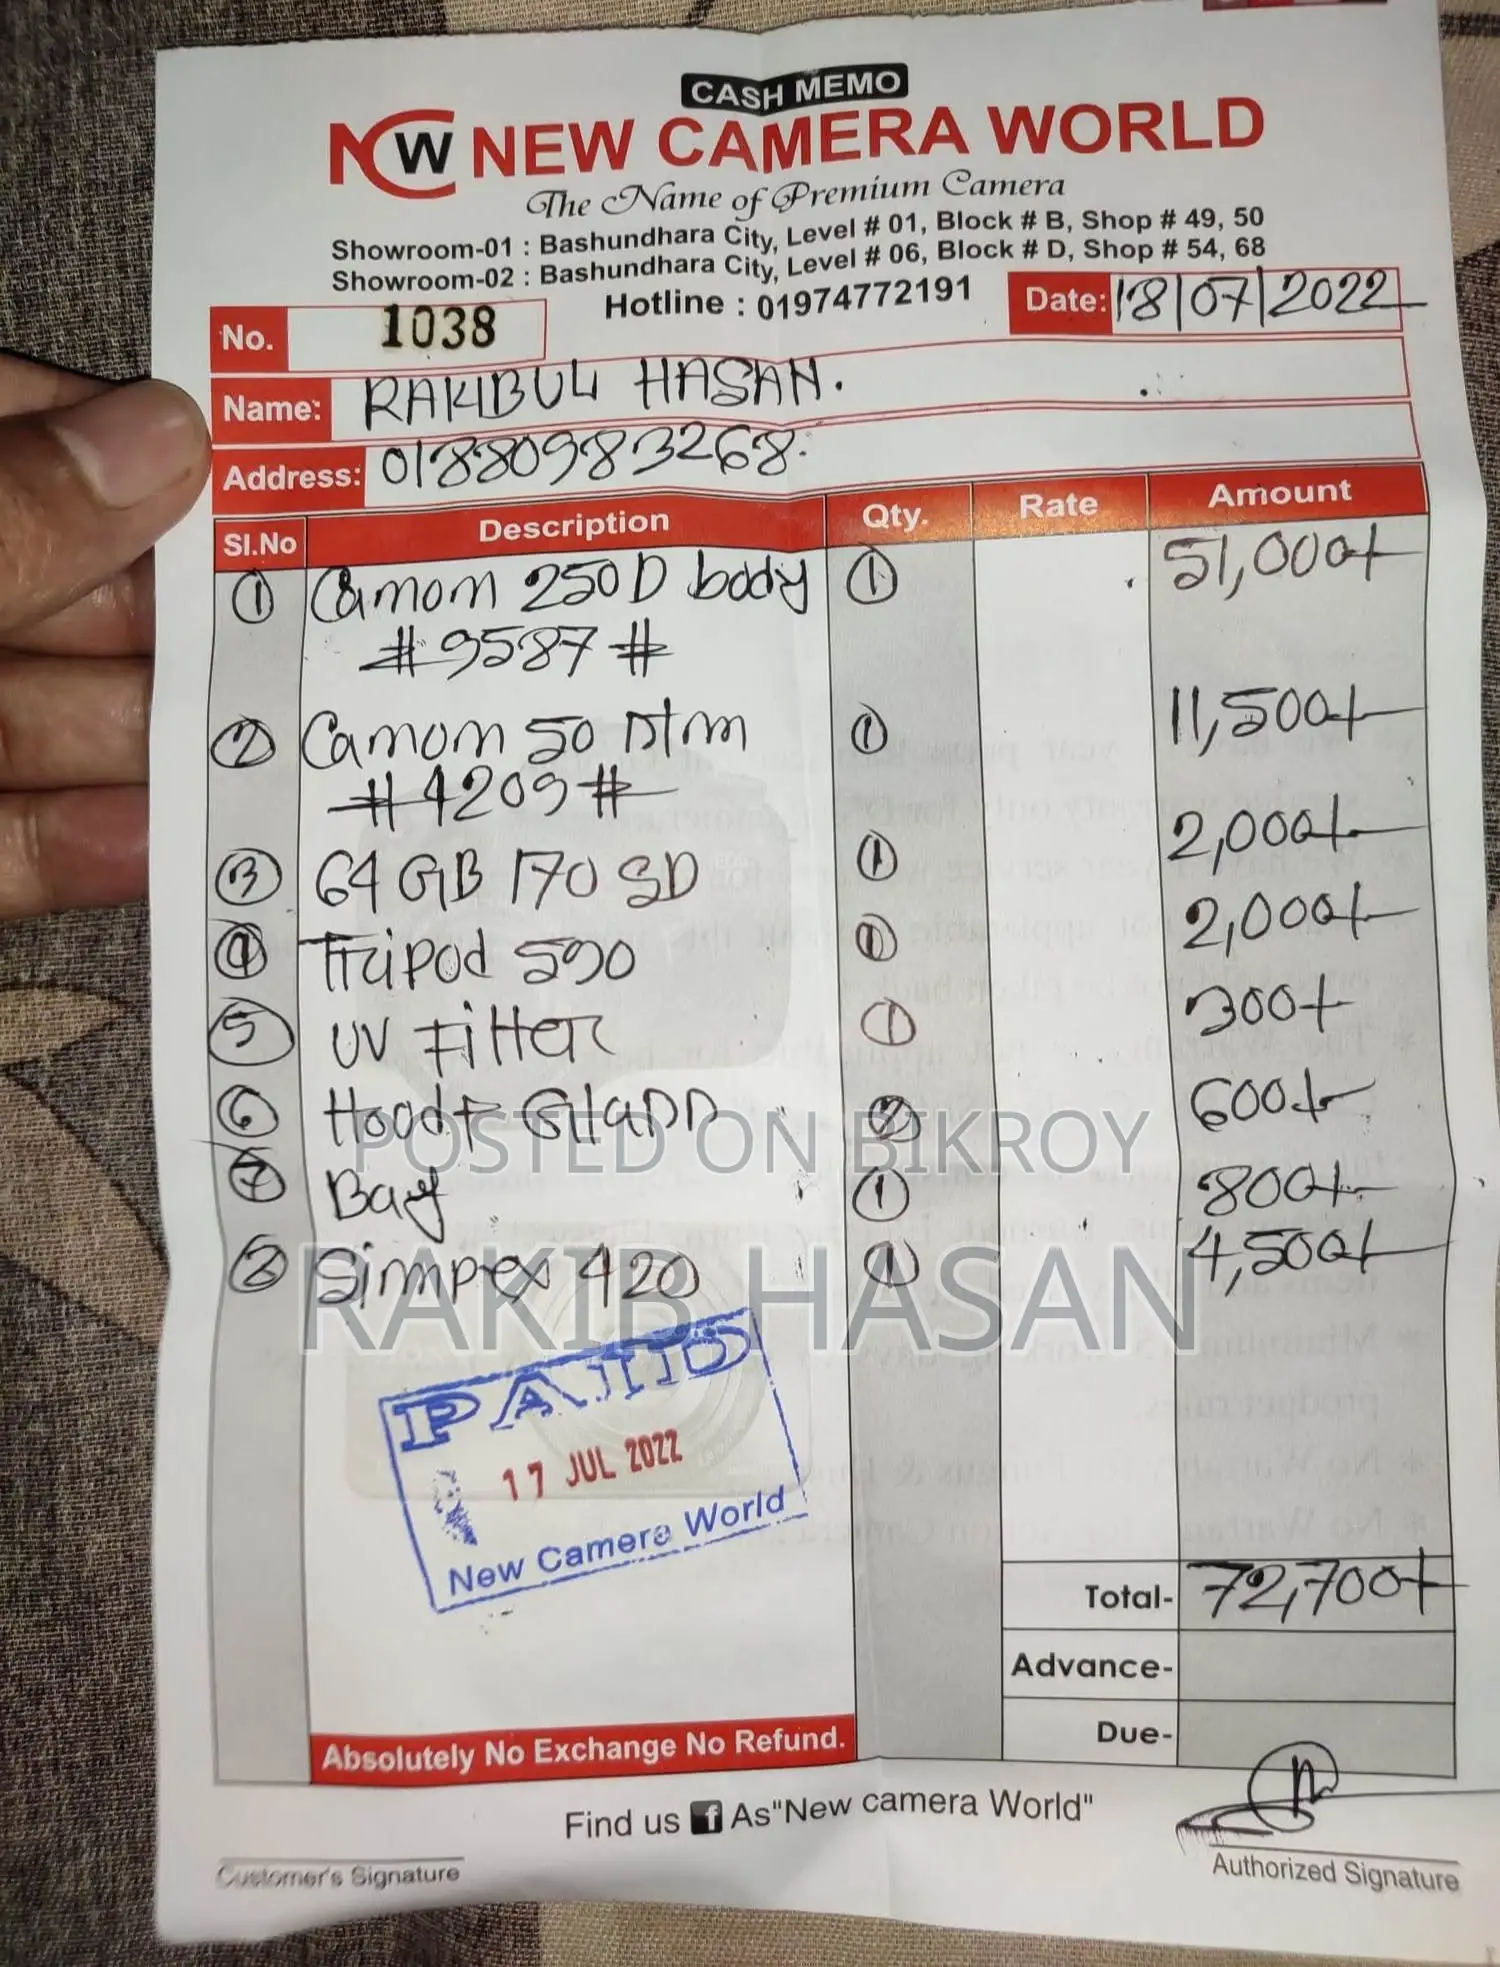 CASH MEMO
NCW NEW CAMERA WORLD
The Name of Premium Camera
Showroom-01 : Bashundhara City, Level # 01, Block # B, Shop # 49, 50
Showroom-02 : Bashundhara City, Level # 06, Block # D, Shop # 54, 68
Hotline : 01974772191
No. 1038
Date: 18/07/2022
Name: RAKIBUL HASAN.
Address: 01880983268.
Sl.No Description Qty. Rate Amount
1 Canon 250D body 1 51,000/-
# 9587 #
2 Canon 50 stm 1 11,500/-
# 4209 #
3 64 GB 170 SD 1 2,000/-
4 Tripod 590 1 2,000/-
5 UV Filter 1 300/-
6 Hood + Glass 2 600/-
POSTED ON BIKROY
7 Bag 1 800/-
8 Simpex 420 1 4,500/-
RAKIB HASAN
PAID
17 JUL 2022
New Camera World
Total- 72,700/-
Advance-
Due-
Absolutely No Exchange No Refund.
Find us f As"New camera World"
Customer's Signature
Authorized Signature